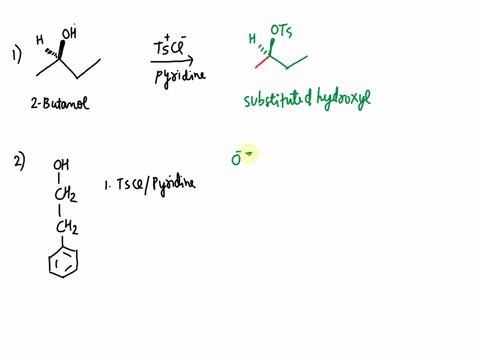 1)
H OH
2-Butanol
Ts+Cl-
pyridine
H OTS
substituted hydroxyl
2)
OH
CH2
CH2
1. TSCl/Pyridine
O-